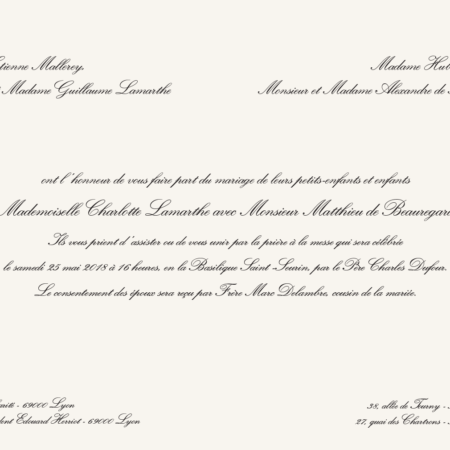 tienne Mallerey,
Madame Hub
Madame Guillaume Lamarthe
Monsieur et Madame Alexandre de
ont l'honneur de vous faire part du mariage de leurs petits-enfants et enfants
Mademoiselle Charlotte Lamarthe avec Monsieur Matthieu de Beauregard
Ils vous prient d'assister ou de vous unir par la prière à la messe qui sera célébrée
le samedi 25 mai 2018 à 16 heures, en la Basilique Saint-Seurin, par le Père Charles Dufour.
Le consentement des époux sera reçu par Frère Marc Delambre, cousin de la mariée.
- 69000 Lyon
38, allée de Tourny -
Edouard Herriot - 69000 Lyon
27, quai des Chartrons -